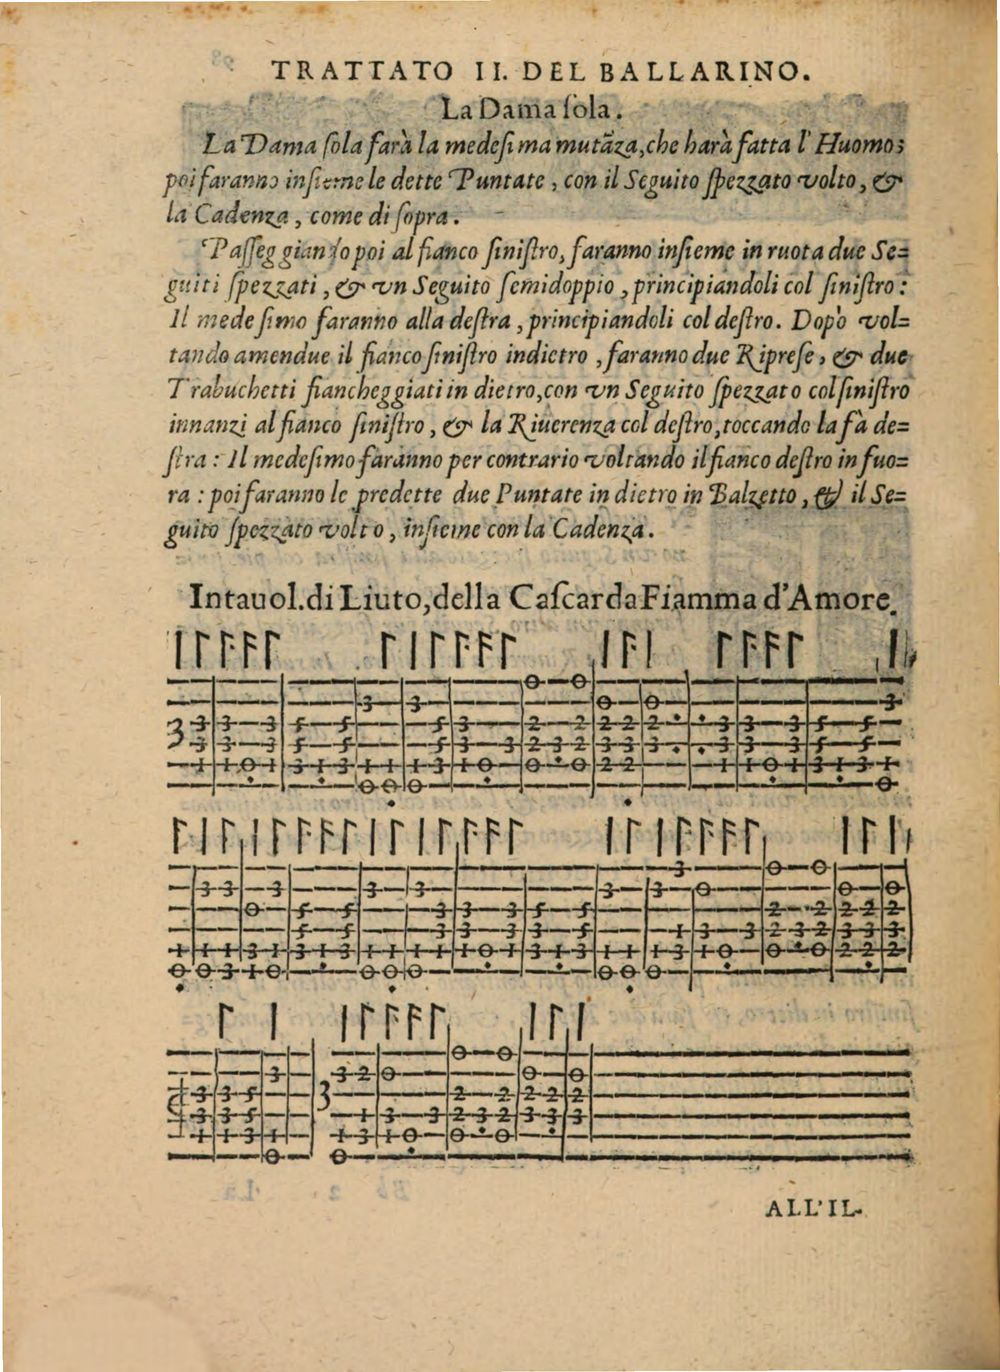 TRATTATO II. DEL BALLARINO.
La Dama ſola.
La Dama ſola farà la medeſima mutāza, che harà fatta l'Huomo;
poi faranno inſieme le dette Puntate, con il Seguito ſpezzato volto, &
la Cadenza, come di ſopra.
Paſſeggiando poi al fianco ſiniſtro, faranno inſieme in ruota due Se=
guiti ſpezzati, & vn Seguito ſemidoppio, principiandoli col ſiniſtro:
Il medeſimo faranno alla deſtra, principiandoli col deſtro. Dopò vol=
tando amendue il fianco ſiniſtro indietro, faranno due Ripreſe, & due
Trabuchetti fiancheggiati in dietro, con vn Seguito ſpezzato col ſiniſtro
innanzi al fianco ſiniſtro, & la Riuerenza col deſtro, toccando la fà de=
ſtra: Il medeſimo faranno per contrario voltando il fianco deſtro in fuo=
ra: poi faranno le predette due Puntate in dietro in Balzetto, & il Se=
guito ſpezzato volto, inſieme con la Cadenza.
Intauol. di Liuto, della Caſcarda Fiamma d'Amore.
ALL'IL-